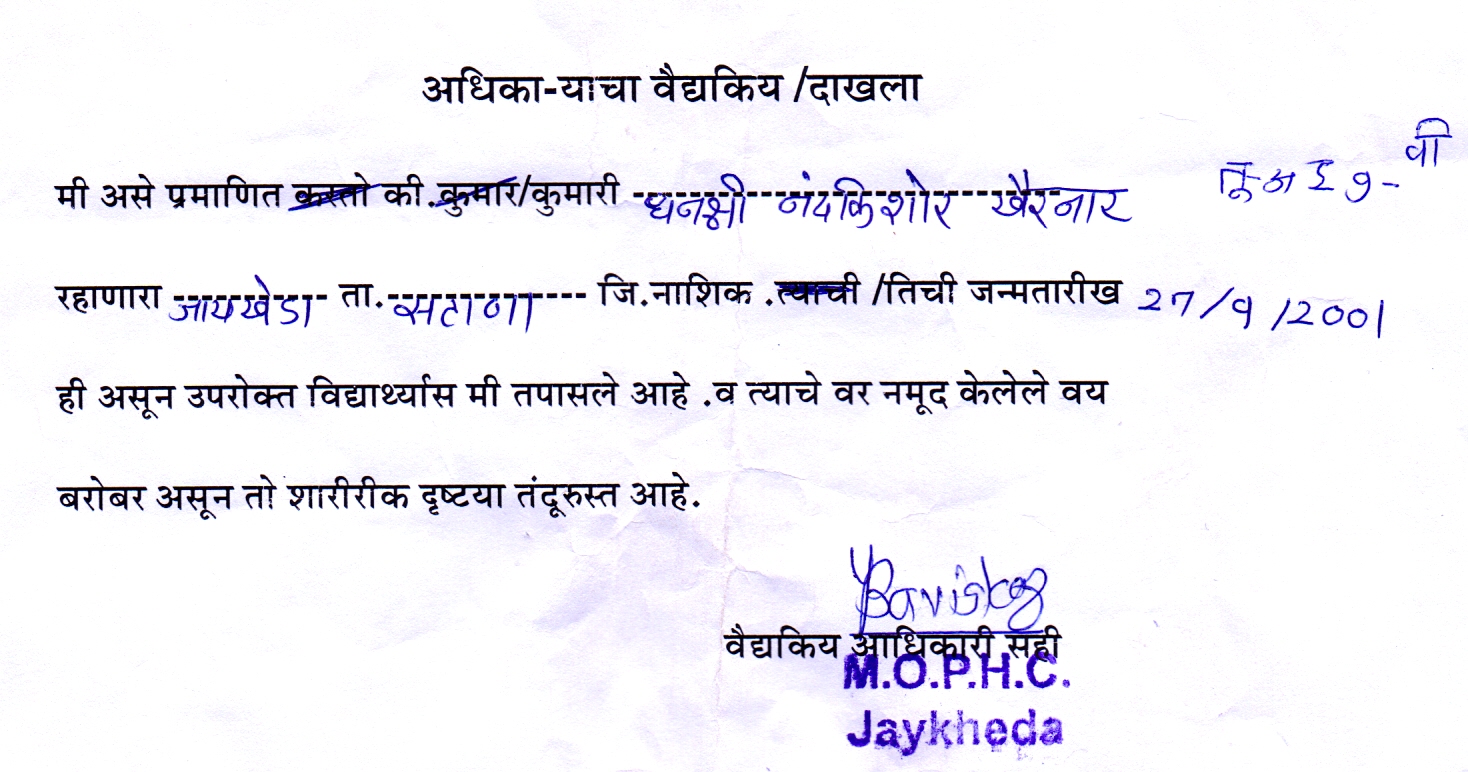 अधिका-याचा वैद्यकिय /दाखला
मी असे प्रमाणित करतो की.कुमार/कुमारी धनश्री नंदकिशोर खैरनार
रहाणारा जायखेडा ता. सटाणा जि.नाशिक .त्याची /तिची जन्मतारीख 27/9/2001
ही असून उपरोक्त विद्यार्थ्यास मी तपासले आहे .व त्याचे वर नमूद केलेले वय
बरोबर असून तो शारीरीक दृष्टया तंदूरुस्त आहे.
वैद्यकिय आधिकारी सही
M.O.P.H.C.
Jaykheda